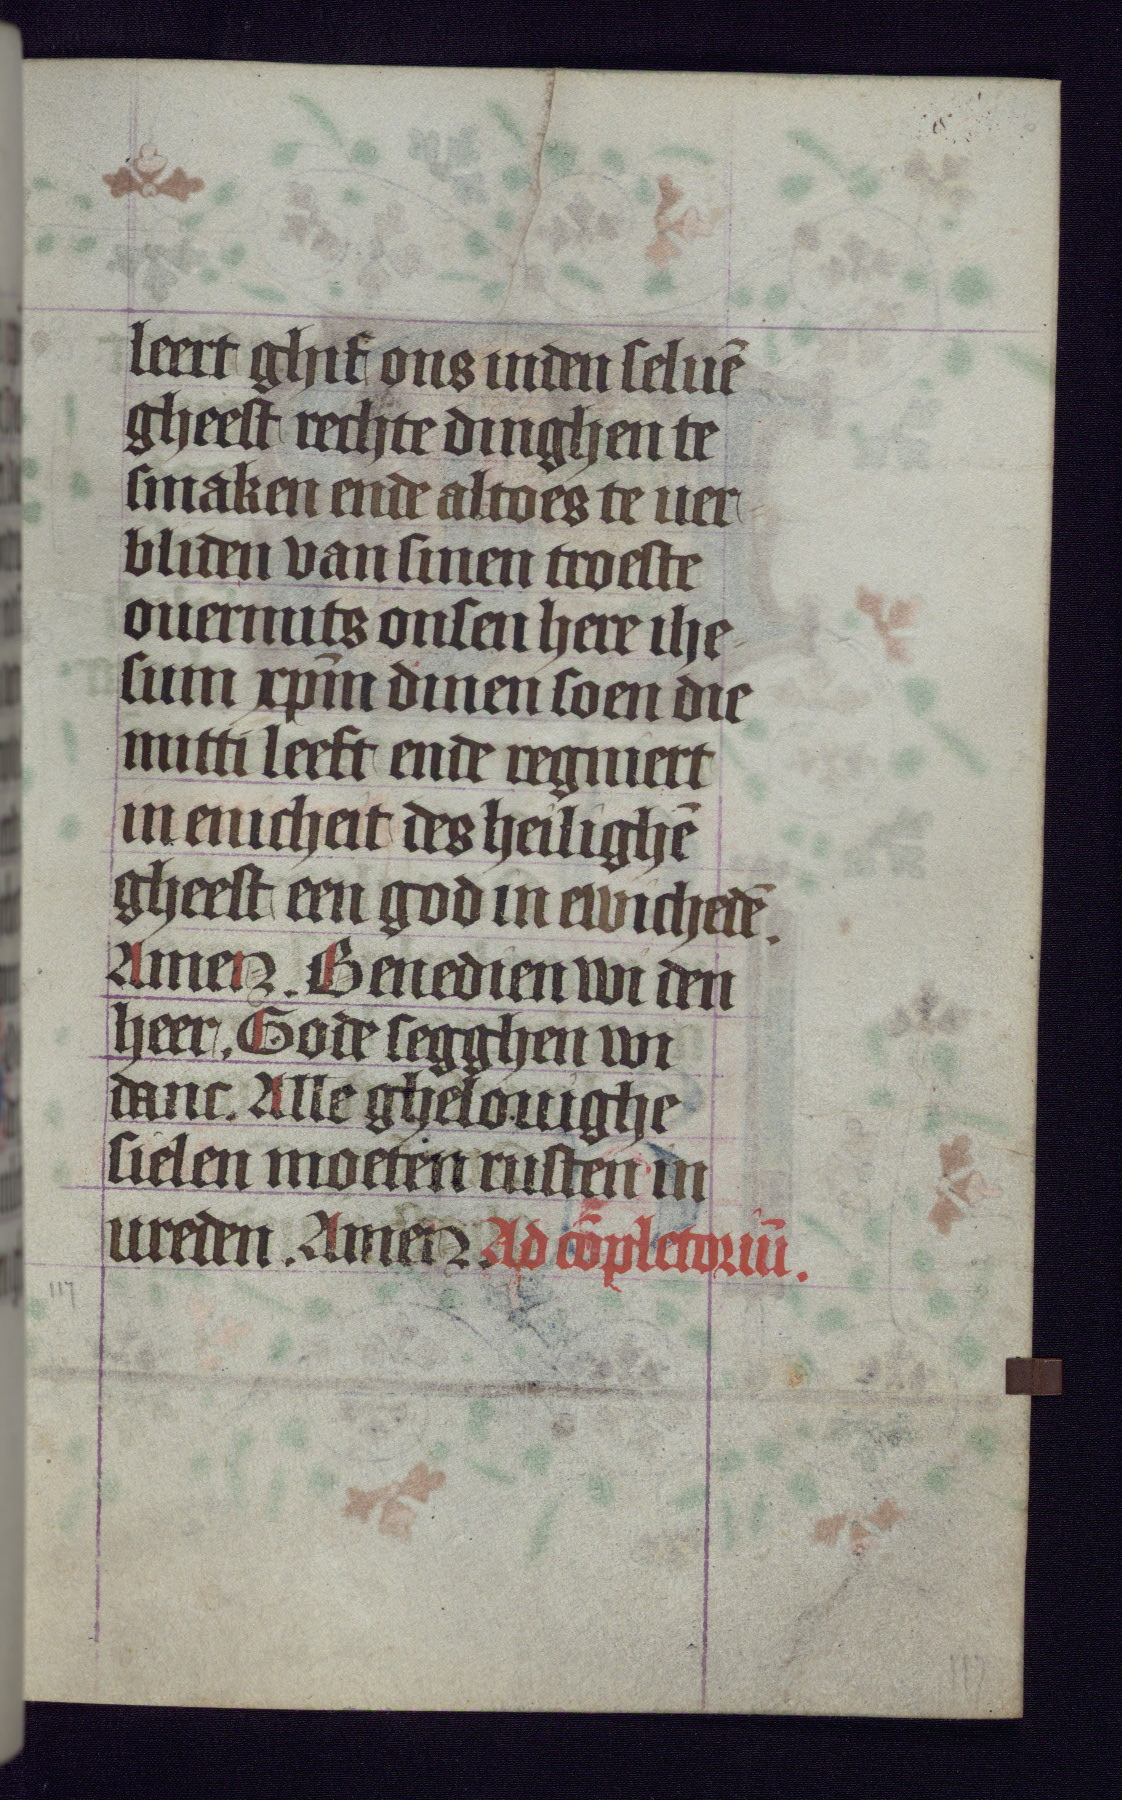 leert ghif ons inden seluē
gheest rechte dinghen te
smaken ende altoes te uer
bliden van sinen troeste
ouermits onsen here ihe
sum xpm̄ dinen soen die
mitti leeft ende regniert
in enicheit des heilighē
gheest een god in ewichedē.
Amen. Benedien wi den
heer. Gode segghen wi
danc. Alle ghelouighe
sielen moeten rusten in
ureden. Amen. Ad cōpletoriū.
117
117